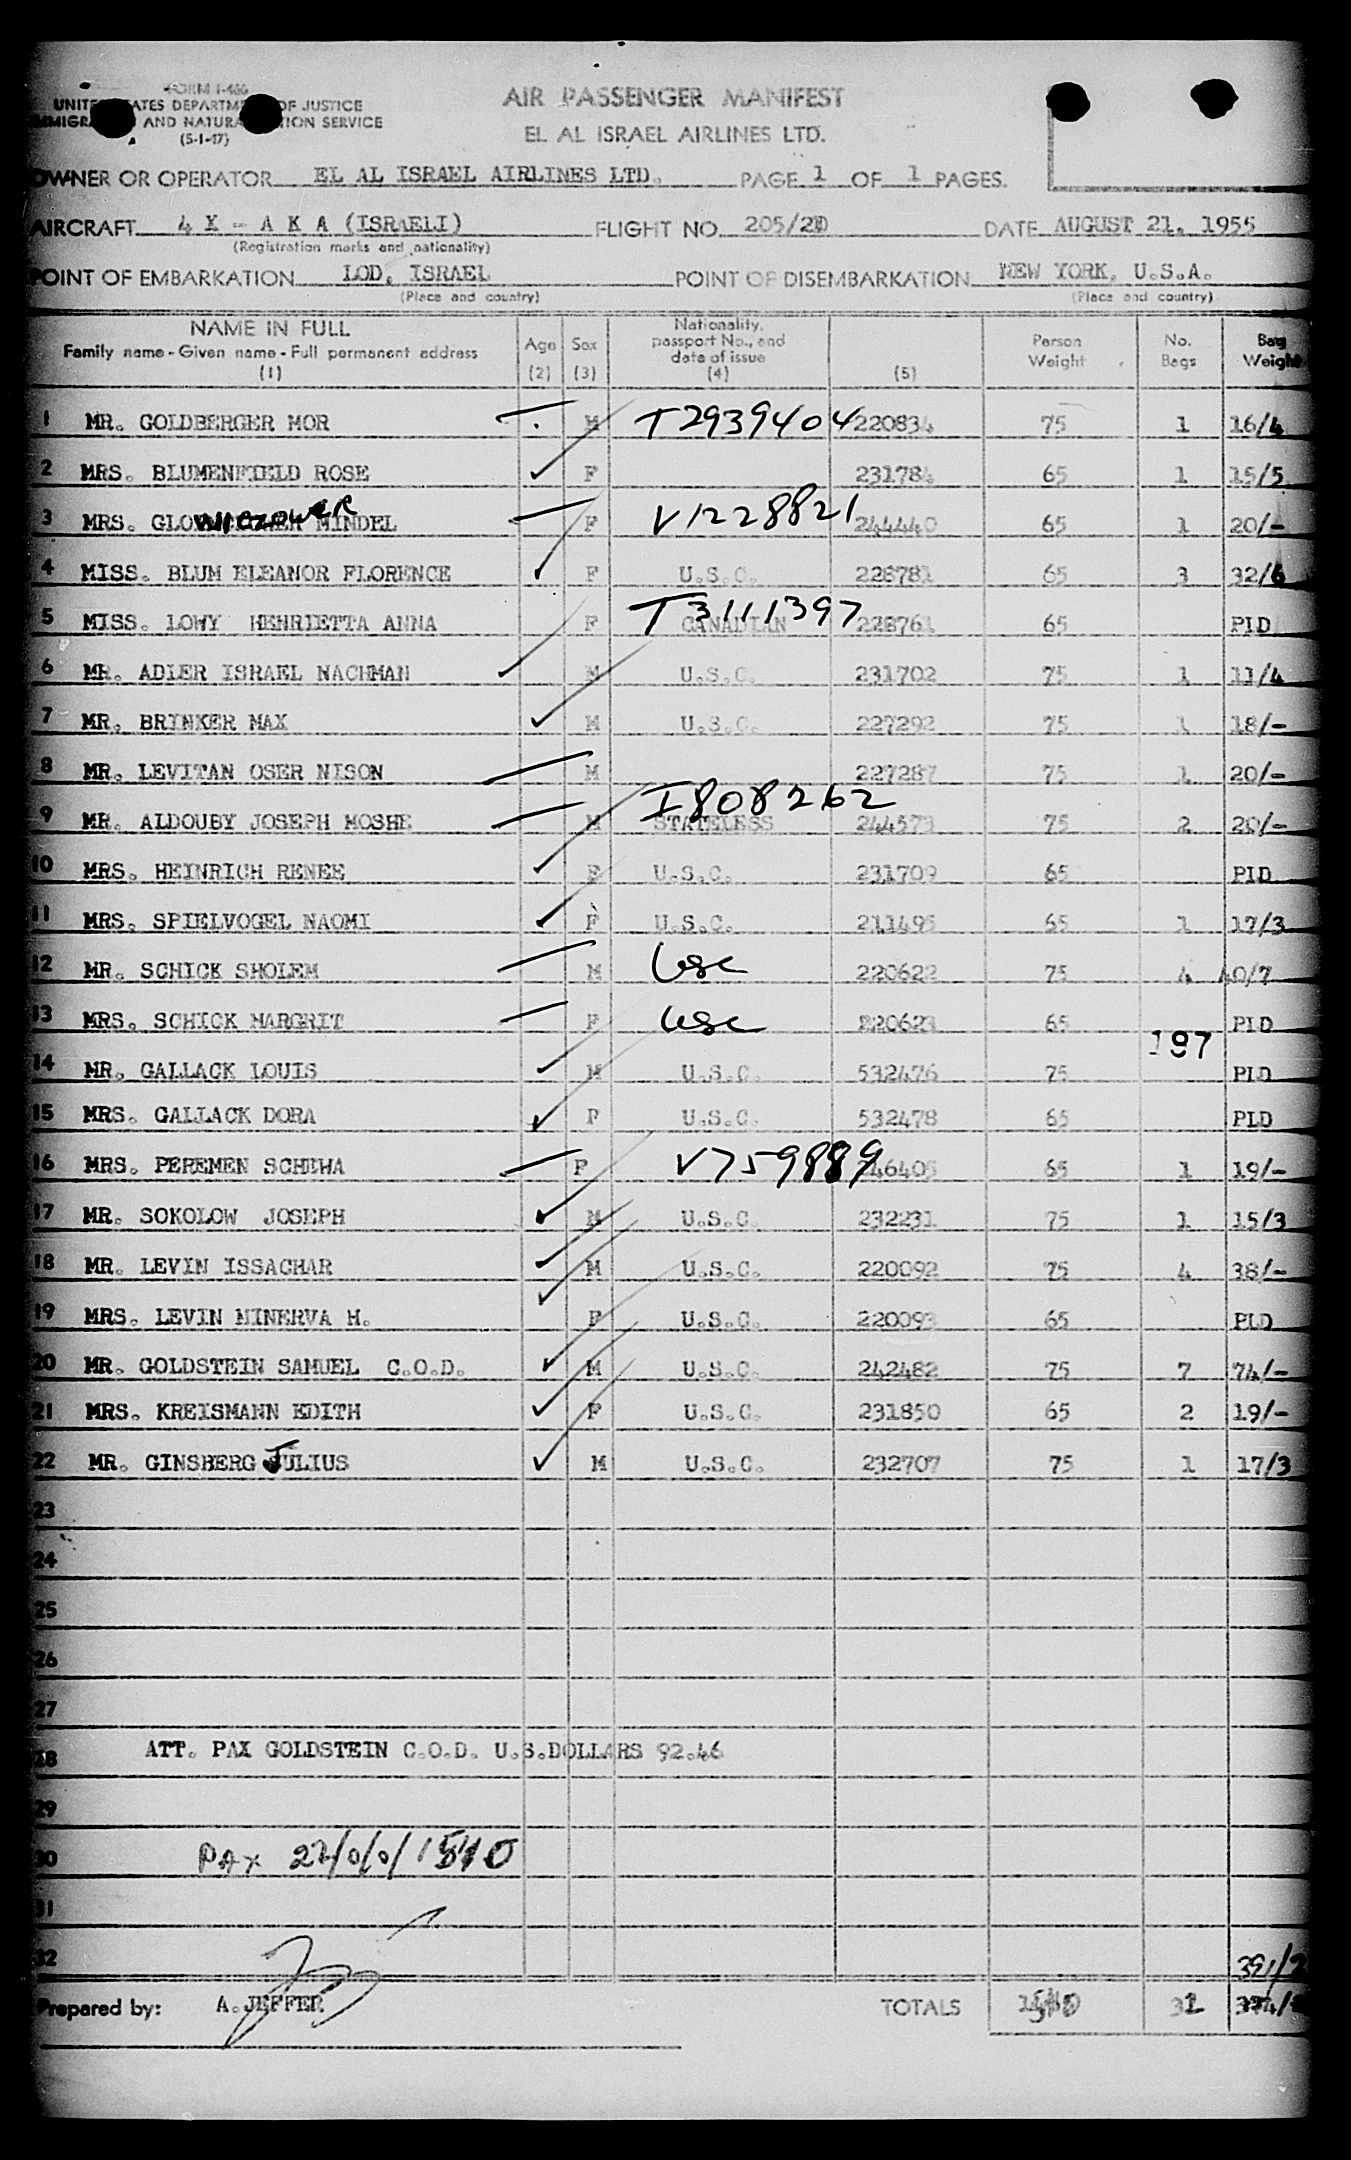 FORM I-466
AIR PASSENGER MANIFEST
DEPARTM OF JUSTICE
AND NATURA TION SERVICE
(5-1-47)
EL AL ISRAEL AIRLINES LTD.
OWNER OR OPERATOR EL AL ISRAEL AIRLINES LTD. PAGE 1 OF 1 PAGES.
AIRCRAFT 4 X - A K A (ISRAELI) FLIGHT NO. 205/21 DATE AUGUST 21. 1955
(Registration marks and nationality)
POINT OF EMBARKATION LOD, ISRAEL POINT OF DISEMBARKATION NEW YORK, U.S.A.
(Place and country) (Place and country)
NAME IN FULL Age Sex Nationality, passport No., and date of issue Person Weight No. Bags Bag Weight
Family name - Given name - Full permanent address
(1) (2) (3) (4) (5)
1 MR. GOLDBERGER MOR M T2939404 220834 75 1 16/4
2 MRS. BLUMENFIELD ROSE F 231784 65 1 15/5
3 MRS. GLOWICZOWER MINDEL F V1228821 244440 65 1 20/-
4 MISS. BLUM ELEANOR FLORENCE F U.S.C. 228781 65 3 32/6
5 MISS. LOWY HENRIETTA ANNA F T3111397 CANADIAN 228761 65 PLD
6 MR. ADLER ISRAEL NACHMAN M U.S.C. 231702 75 1 11/4
7 MR. BRINKER MAX M U.S.C. 227292 75 1 18/-
8 MR. LEVITAN OSER NISON M 227287 75 1 20/-
9 MR. ALDOUBY JOSEPH MOSHE M I808262 STATELESS 244573 75 2 20/-
10 MRS. HEINRICH RENEE F U.S.C. 231709 65 PLD
11 MRS. SPIELVOGEL NAOMI F U.S.C. 211495 65 1 17/3
12 MR. SCHICK SHOLEM M usc 220622 75 4 40/7
13 MRS. SCHICK MARGRIT F usc 220623 65 PLD
197
14 MR. GALLACK LOUIS M U.S.C. 532476 75 PLD
15 MRS. GALLACK DORA F U.S.C. 532478 65 PLD
16 MRS. PEREMEN SCHEWA F V759889 246405 65 1 19/-
17 MR. SOKOLOW JOSEPH M U.S.C. 232231 75 1 15/3
18 MR. LEVIN ISSACHAR M U.S.C. 220092 75 4 38/-
19 MRS. LEVIN MINERVA H. F U.S.C. 220093 65 PLD
20 MR. GOLDSTEIN SAMUEL C.O.D. M U.S.C. 242482 75 7 74/-
21 MRS. KREISMANN EDITH F U.S.C. 231850 65 2 19/-
22 MR. GINSBERG JULIUS M U.S.C. 232707 75 1 17/3
23
24
25
26
27
28 ATT. PAX GOLDSTEIN C.O.D. U.S.DOLLARS 92.46
29
30 PAX 22/0/0/1540
31
32 391/
Prepared by: A. JEFFER TOTALS